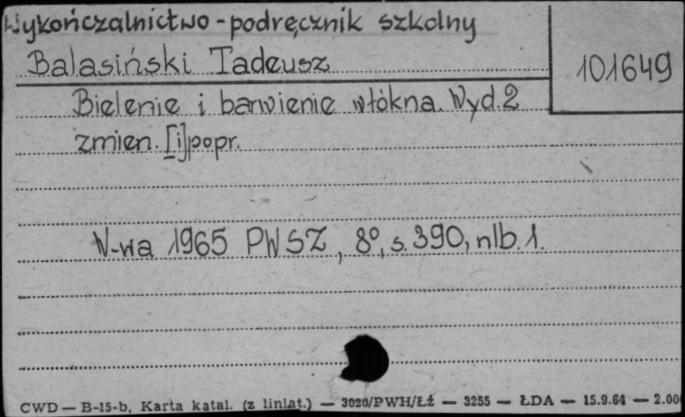 Wykończalnictwo - podręcznik szkolny
Balasiński Tadeusz
101649
Bielenie i barwienie włókna. Wyd. 2
zmien. [i] popr.
W-wa 1965 PWSZ, 8°, s. 390, nlb. 1.
CWD — B-15-b, Karta katal. (z liniat.) — 3020/PWH/Łź — 3255 — ŁDA — 15.9.64 — 2.00